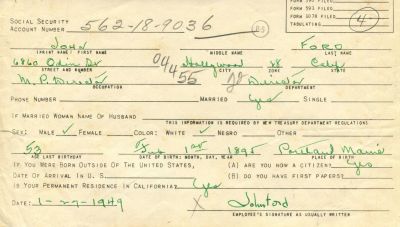 FORM 593 FILED
FORM 1078 FILED
TABULATING
4-
SOCIAL SECURITY
ACCOUNT NUMBER 562-18-9036
JOHN FORD
(PRINT NAME) FIRST NAME MIDDLE NAME LAST NAME
6860 Odin St Hollywood 28 Calif
STREET AND NUMBER CITY STATE
M.P. Director 04455 Director
OCCUPATION DEPARTMENT
PHONE NUMBER MARRIED Yes SINGLE
IF MARRIED WOMAN NAME OF HUSBAND
THIS INFORMATION IS REQUIRED BY NEW TREASURY DEPARTMENT REGULATIONS
SEX: MALE ✓ FEMALE COLOR: WHITE ✓ NEGRO OTHER
53 1st 1895 Portland Maine
AGE LAST BIRTHDAY DATE OF BIRTH: MONTH, DAY, YEAR PLACE OF BIRTH
IF YOU WERE BORN OUTSIDE OF THE UNITED STATES, (A) ARE YOU NOW A CITIZEN? Yes
DATE OF ARRIVAL IN U.S. (B) DO YOU HAVE FIRST PAPERS?
IS YOUR PERMANENT RESIDENCE IN CALIFORNIA? Yes
DATE: 1-27-1949 X John Ford
EMPLOYEE'S SIGNATURE AS USUALLY WRITTEN